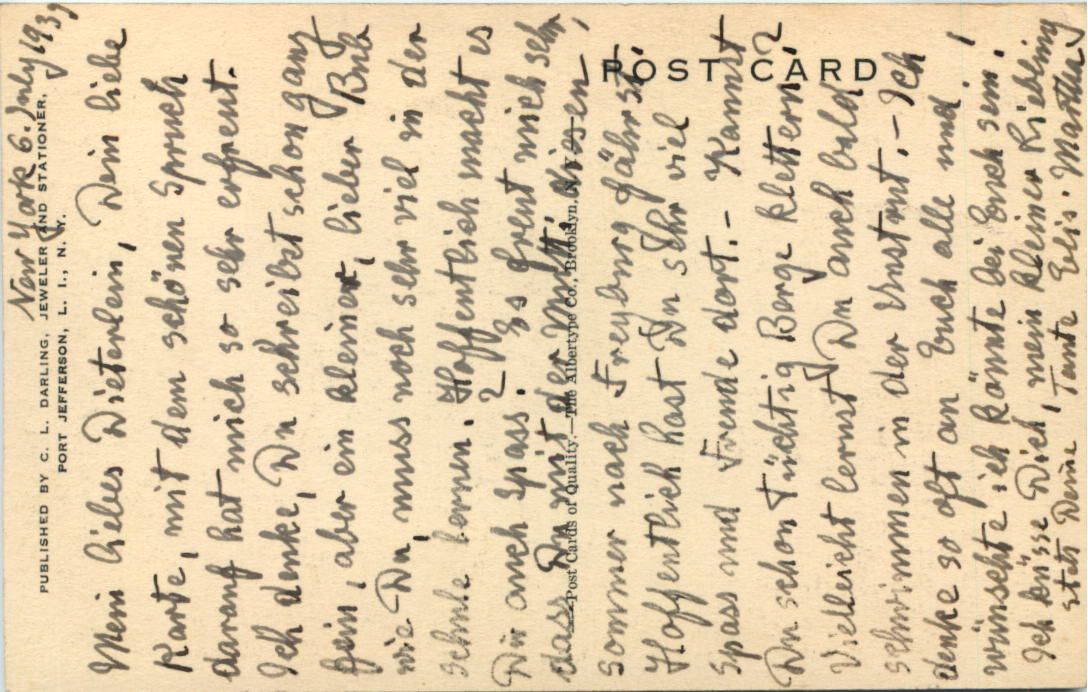 PUBLISHED BY C. L. DARLING, JEWELER AND STATIONER,
PORT JEFFERSON, L. I., N. Y.
POST CARD
Post Cards of Quality.—The Albertype Co., Brooklyn, N. Y.
New York 6. July 1939
Mein liebes Dieterlein, Dein liebe
Karte, mit dem schönen Spruch
darauf hat mich so sehr erfreut.
Ich denke, Du schreibst schon ganz
fein, aber ein kleiner, lieber Bub
wie Du, muss noch sehr viel in der
Schule lernen. Hoffentlich macht es
Dir auch Spass? Es freut mich sehr,
dass Du mit der
Sommer nach Freyburg fährst,
Hoffentlich hast Du sehr viel
Spass und Freude dort. - Kannst
Du schon tüchtig Berge klettern?
Vielleicht lernst Du auch bald
schwimmen in der Unstrut. - Ich
denke so oft an Euch alle und
wünschte ich könnte bei Euch sein!
Ich küsse Dich, mein kleiner Liebling
stets Deine Tante Elis. Martha